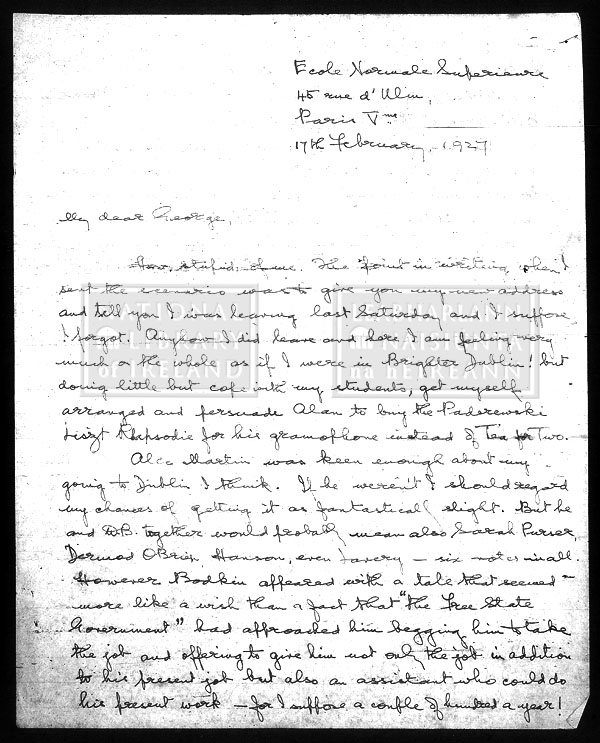 Ecole Normale Superieure
45 rue d'Ulm,
Paris Vme
17th February, 1927
My dear George,
How stupid of me. The point in writing when I
sent the scenario was to give you my new address
and tell you I was leaving last Saturday and I suppose
I forgot. Anyhow I did leave and here I am feeling very
much on the whole as if I were in Brighter Dublin! but
doing little but cope with my students, get myself
arranged and persuade Alan to buy the Paderewski
Liszt Rhapsodie for his gramophone instead of Tea for Two.
Alec Martin was keen enough about my
going to Dublin I think. If he weren't I should regard
my chances of getting it as fantastically slight. But he
and D.B. together would probably mean also Sarah Purser,
Dermod OBrien, Hanson, even Lavery — six notes in all.
However Bodkin appeared with a tale that seemed
more like a wish than a fact that "the Free State
Government" had approached him begging him to take
the job and offering to give him not only the job in addition
to his present job but also an assistant who could do
his present work — for I suppose a couple of hundred a year!
NATIONAL
LIBRARY
OF IRELAND
LEABHARLANN
NÁISIÚNTA
NA HÉIREANN